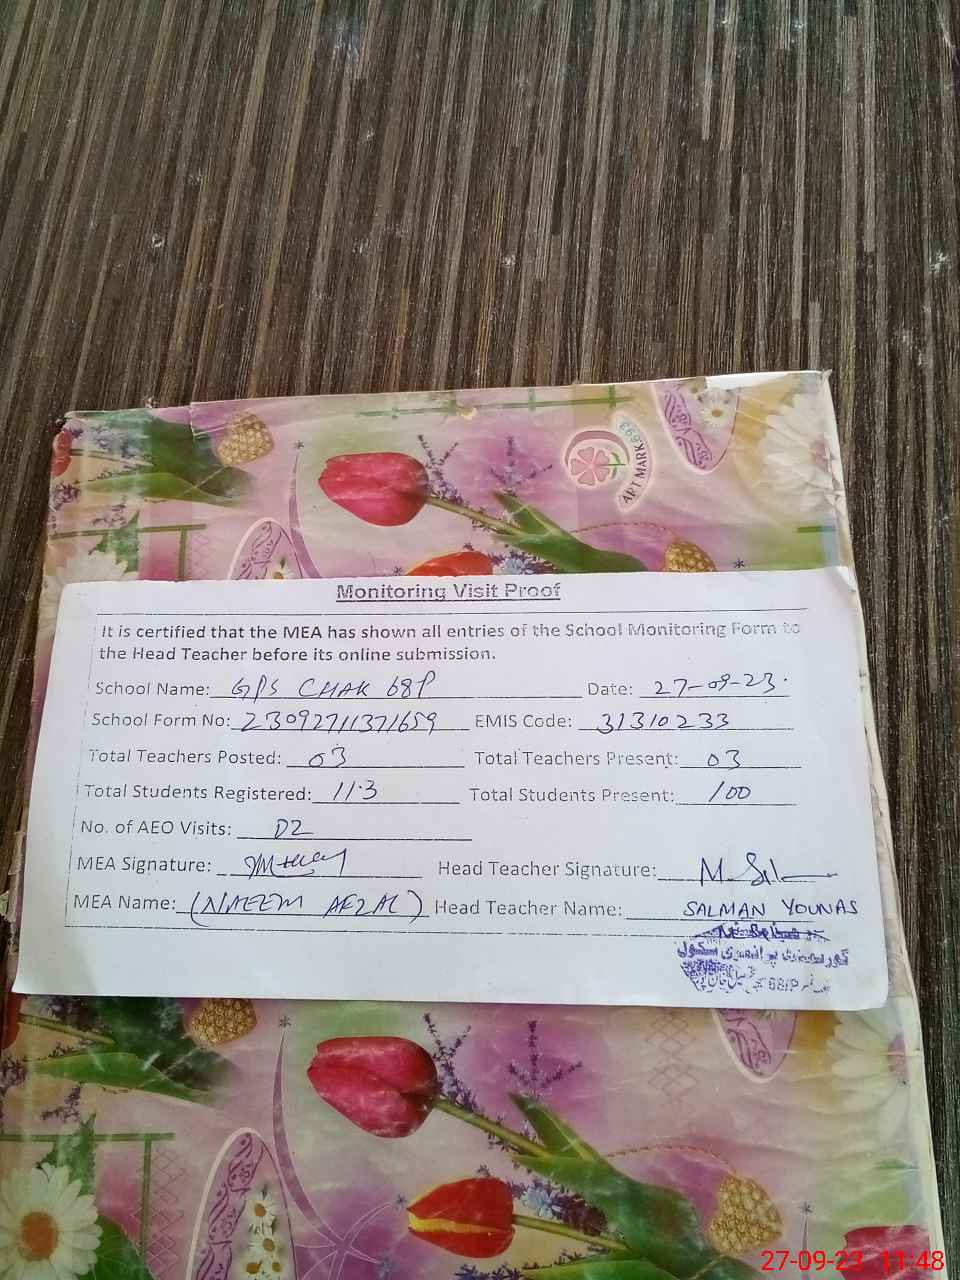 ART MARK 693
Monitoring Visit Proof
It is certified that the MEA has shown all entries of the School Monitoring Form to
the Head Teacher before its online submission.
School Name: GPS CHAK 68P Date: 27-09-23
School Form No: 23092711371659 EMIS Code: 31310233
Total Teachers Posted: 03 Total Teachers Present: 03
Total Students Registered: 113 Total Students Present: 100
No. of AEO Visits: 02
MEA Signature: Head Teacher Signature:
MEA Name: (NAEEM AFZAL) Head Teacher Name: SALMAN YOUNAS
گورنمنٹ پرائمری سکول
68/P
27-09-23 11:48